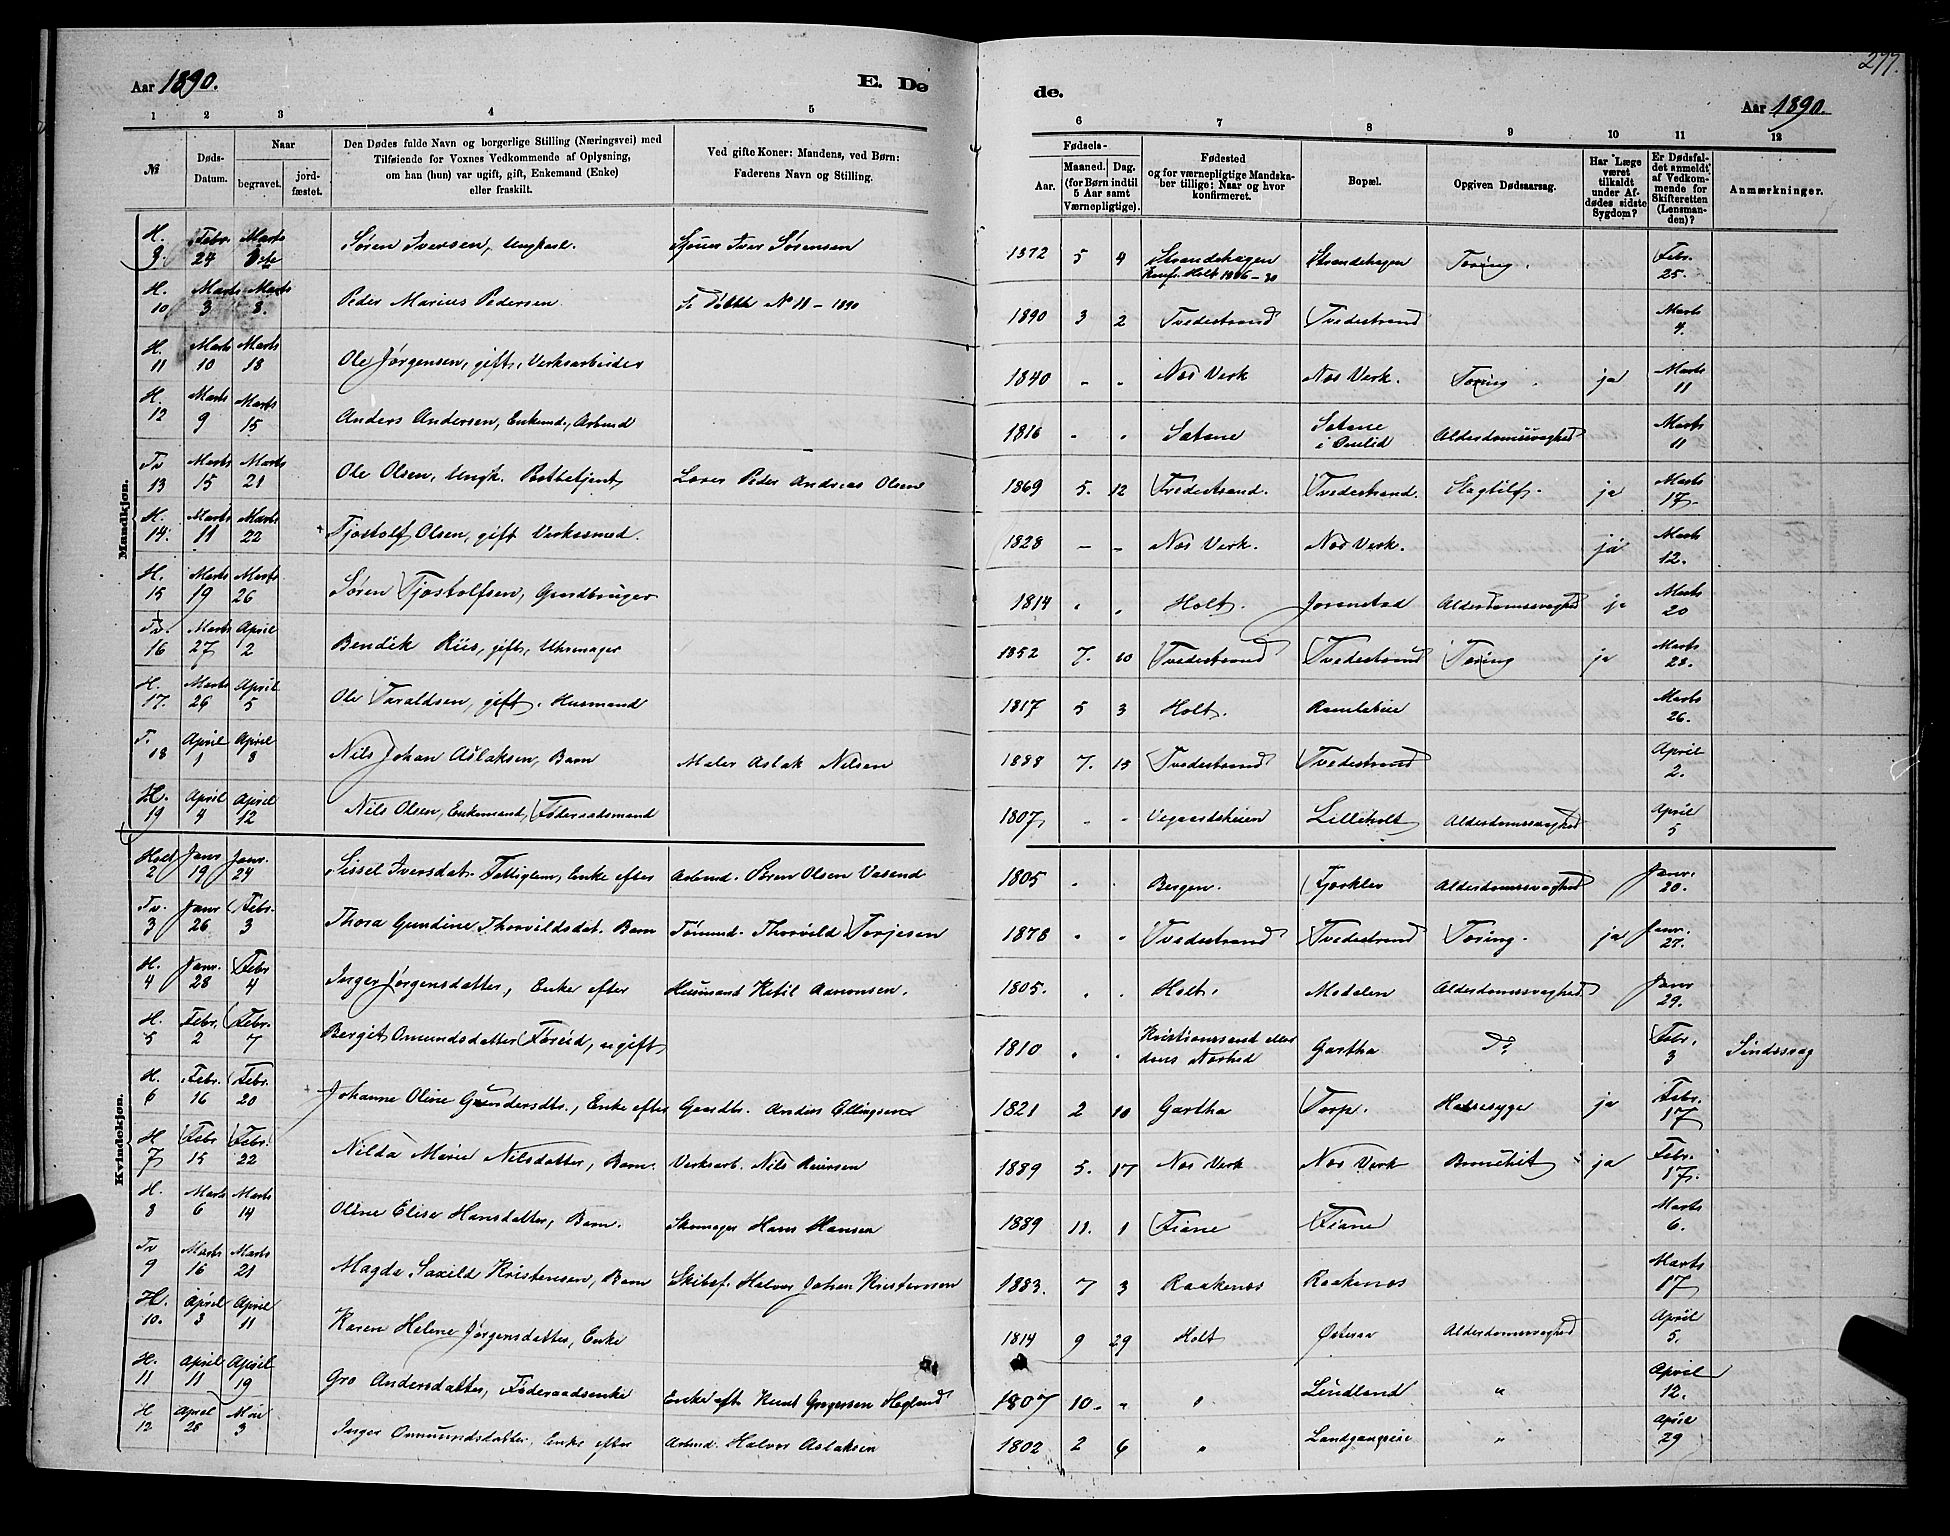 277.
Aar 1890.
E. Døde.
Aar 1890.
1 2 3 4 5 6 7 8 9 10 11 12
№
Døds-Datum.
Naar
begravet.
jord-fæstet.
Den Dødes fulde Navn og borgerlige Stilling (Næringsvei) med
Tilføiende for Voxnes Vedkommende af Oplysning,
om han (hun) var ugift, gift, Enkemand (Enke)
eller fraskilt.
Ved gifte Koner: Mandens, ved Børn:
Faderens Navn og Stilling.
Fødsels-
Aar.
Maaned.
Dag.
(for Børn indtil
5 Aar samt
Værnepligtige).
Fødested
og for værnepligtige Mandska-
ber tillige: Naar og hvor
konfirmeret.
Bopæl.
Opgiven Dødsaarsag.
Har Læge
været
tilkaldt
under Af-
dødes sidste
Sygdom?
Er Dødsfal-
det anmeldt
af Vedkom-
mende for
Skifteretten
(Lensman-
den)?
Anmærkninger.
Mandkjøn.
H. 9. Febr. 24 Marts Søren Iversen, Ungkarl. Iver Sørensen 1872 5 4 Strandehagen Konf. Holt Strandehagen Tæring. Febr. 25.
H. 10 Marts 3 Marts 8. Peder Marius Pedersen. Se Døbte № 11 – 1890 1890 3 2 Tvedestrand Tvedestrand Marts 4.
H. 11 Marts 10 Marts 18 Ole Jørgensen, gift, Verksarbeider 1840 - " Næs Verk Næs Verk. Tæring. ja Marts 11
H. 12 Marts 9 Marts 15 Anders Andersen, Enkemd., Arbmd 1816 " " Satane Satane i Alderdomssvaghed Marts 11
Tv 13 Marts 15 Marts 21 Ole Olsen, Ungk. Postbetjent Peder Andreas Olsen 1869 5. 12 Tvedestrand. Tvedestrand. Slagtilf. ja Marts 17
H. 14. Marts 11 Marts 22 + Tjøstolf Olsen, gift Verkssmed. 1828 - - Næs Verk. Næs Verk. ja Marts 12.
H. 15 Marts 19 Marts 26 Søren Tjøstolfsen, Gaardbruger 1814 " " Holt. Jorenstad Alderdomssvaghed ja Marts 20
Tv. 16 Marts 27 April 2 Bendik Riis, gift, Uhrmager 1852 7. 10 Tvedestrand Tvedestrand Tæring ja Marts 28.
H. 17. Marts 26 April 5 Ole Taraldsen, gift. Husmand 1817 5 3 Holt. Marts 26.
T. 18 April 1 April 8 Nils Johan Aslaksen, Barn Maler Aslak Nilsen 1888 7. 15 Tvedestrand Tvedestrand April 2.
H. 19 April 4 April 12 Nils Olsen, Enkemand, Føderaadsmand 1807 " " Vegaardsheien Lilleholt Alderdomssvaghed April 5
Kvindekjøn.
Holt 2 Janr 19 Janr. 24 Sissel Iversdat. Fattiglem, Enke efter Arbmd. Søren Olsen Vasend 1805 " " Bergen. Alderdomssvaghed Janr. 20.
Tv. 3 Janr 26 Febr. 3 Thora Gundine Thorvildsdat. Barn Tømmd. Thorvild Torjesen 1878 " " Tvedestrand Tvedestrand Tæring. ja Janr. 27.
H. 4 Janr. 28 Febr 4 Inger Jørgensdatter, Enke efter Husmand Ketil Aanonsen. 1805. " " Holt. Modalen Alderdomssvaghed Janr 29.
H. 5 Febr. 2 Febr. 7 Bergit Omundsdatter ugift 1810 " " Kristianssand eller dens Nærhed Gartha Do Febr. 3 Sindssvag
H. 6 Febr. 16 Febr. 20 + Johanne Oline Gundersdtr., Enke efter Gaardbr. Anders Ellingsen 1821 2 10 Gartha Torp. ja Febr. 17
H 7 Febr 15 Febr. 22 Nilda Marie Nilsdatter, Barn. Verksarb. Nils 1889 5. 17 Næs Verk Næs Verk Bronchit ja Febr. 17.
H. 8 Marts 6 Marts 14 Oline Elise Hansdatter, Barn. Skomager Hans Hansen 1889 11. 1 Fiane Fiane Marts 6.
Tv 9 Marts 16 Marts 21 Magda Saxild Kristensen, Barn Skibsf. Halvor Johan Kristensen 1883. 7 3 Raakenes Raakenes Marts 17
H. 10. April 3 April 11 Karen Helene Jørgensdatter, Enke 1814 9 29 Holt Østeraa Alderdomssvaghed April 5.
H. 11 April 11 April 19 Gro Andersdatter, Føderaadsenke Enke eft. Knut Gregersen Hegland 1807 10. " " Lindland " April 12.
H 12 April 28 Mai 3 Inger Ommundsdatter, Enke efter Arbmd. Halvor Aslaksen 1802 2 6 " " April 29